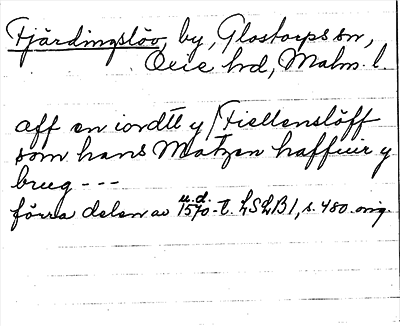 Fjärdingslöv, by, Glostorps sn,
Oxie hd, Malm. l.
aff en iordtt y / Fiellenslöff
som hans Matzen haffuir y
brug ---
förra delen av u.d. 1570-t. LSLB1, s. 480. orig.